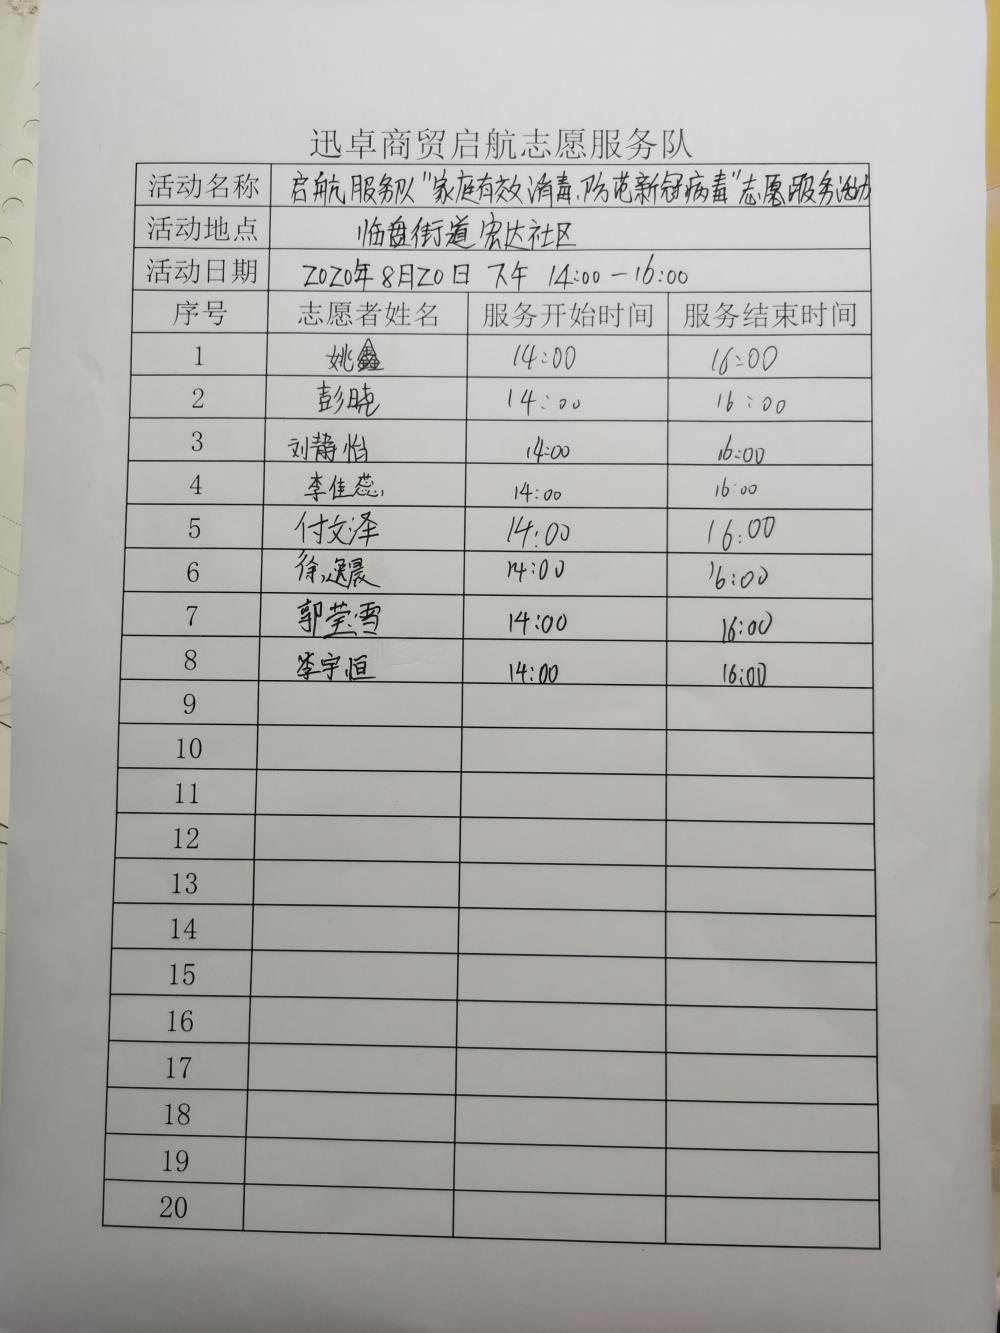 迅卓商贸启航志愿服务队
活动名称 启航服务队"家庭有效消毒、防范新冠病毒"志愿服务活动
活动地点 临盘街道宏达社区
活动日期 2020年8月20日 下午 14:00—16:00
序号 志愿者姓名 服务开始时间 服务结束时间
1 姚鑫 14:00 16:00
2 彭晓 14:00 16:00
3 刘静怡 14:00 16:00
4 李佳蕊 14:00 16:00
5 付文泽 14:00 16:00
6 徐逸晨 14:00 16:00
7 郭莹雪 14:00 16:00
8 李宇恒 14:00 16:00
9
10
11
12
13
14
15
16
17
18
19
20